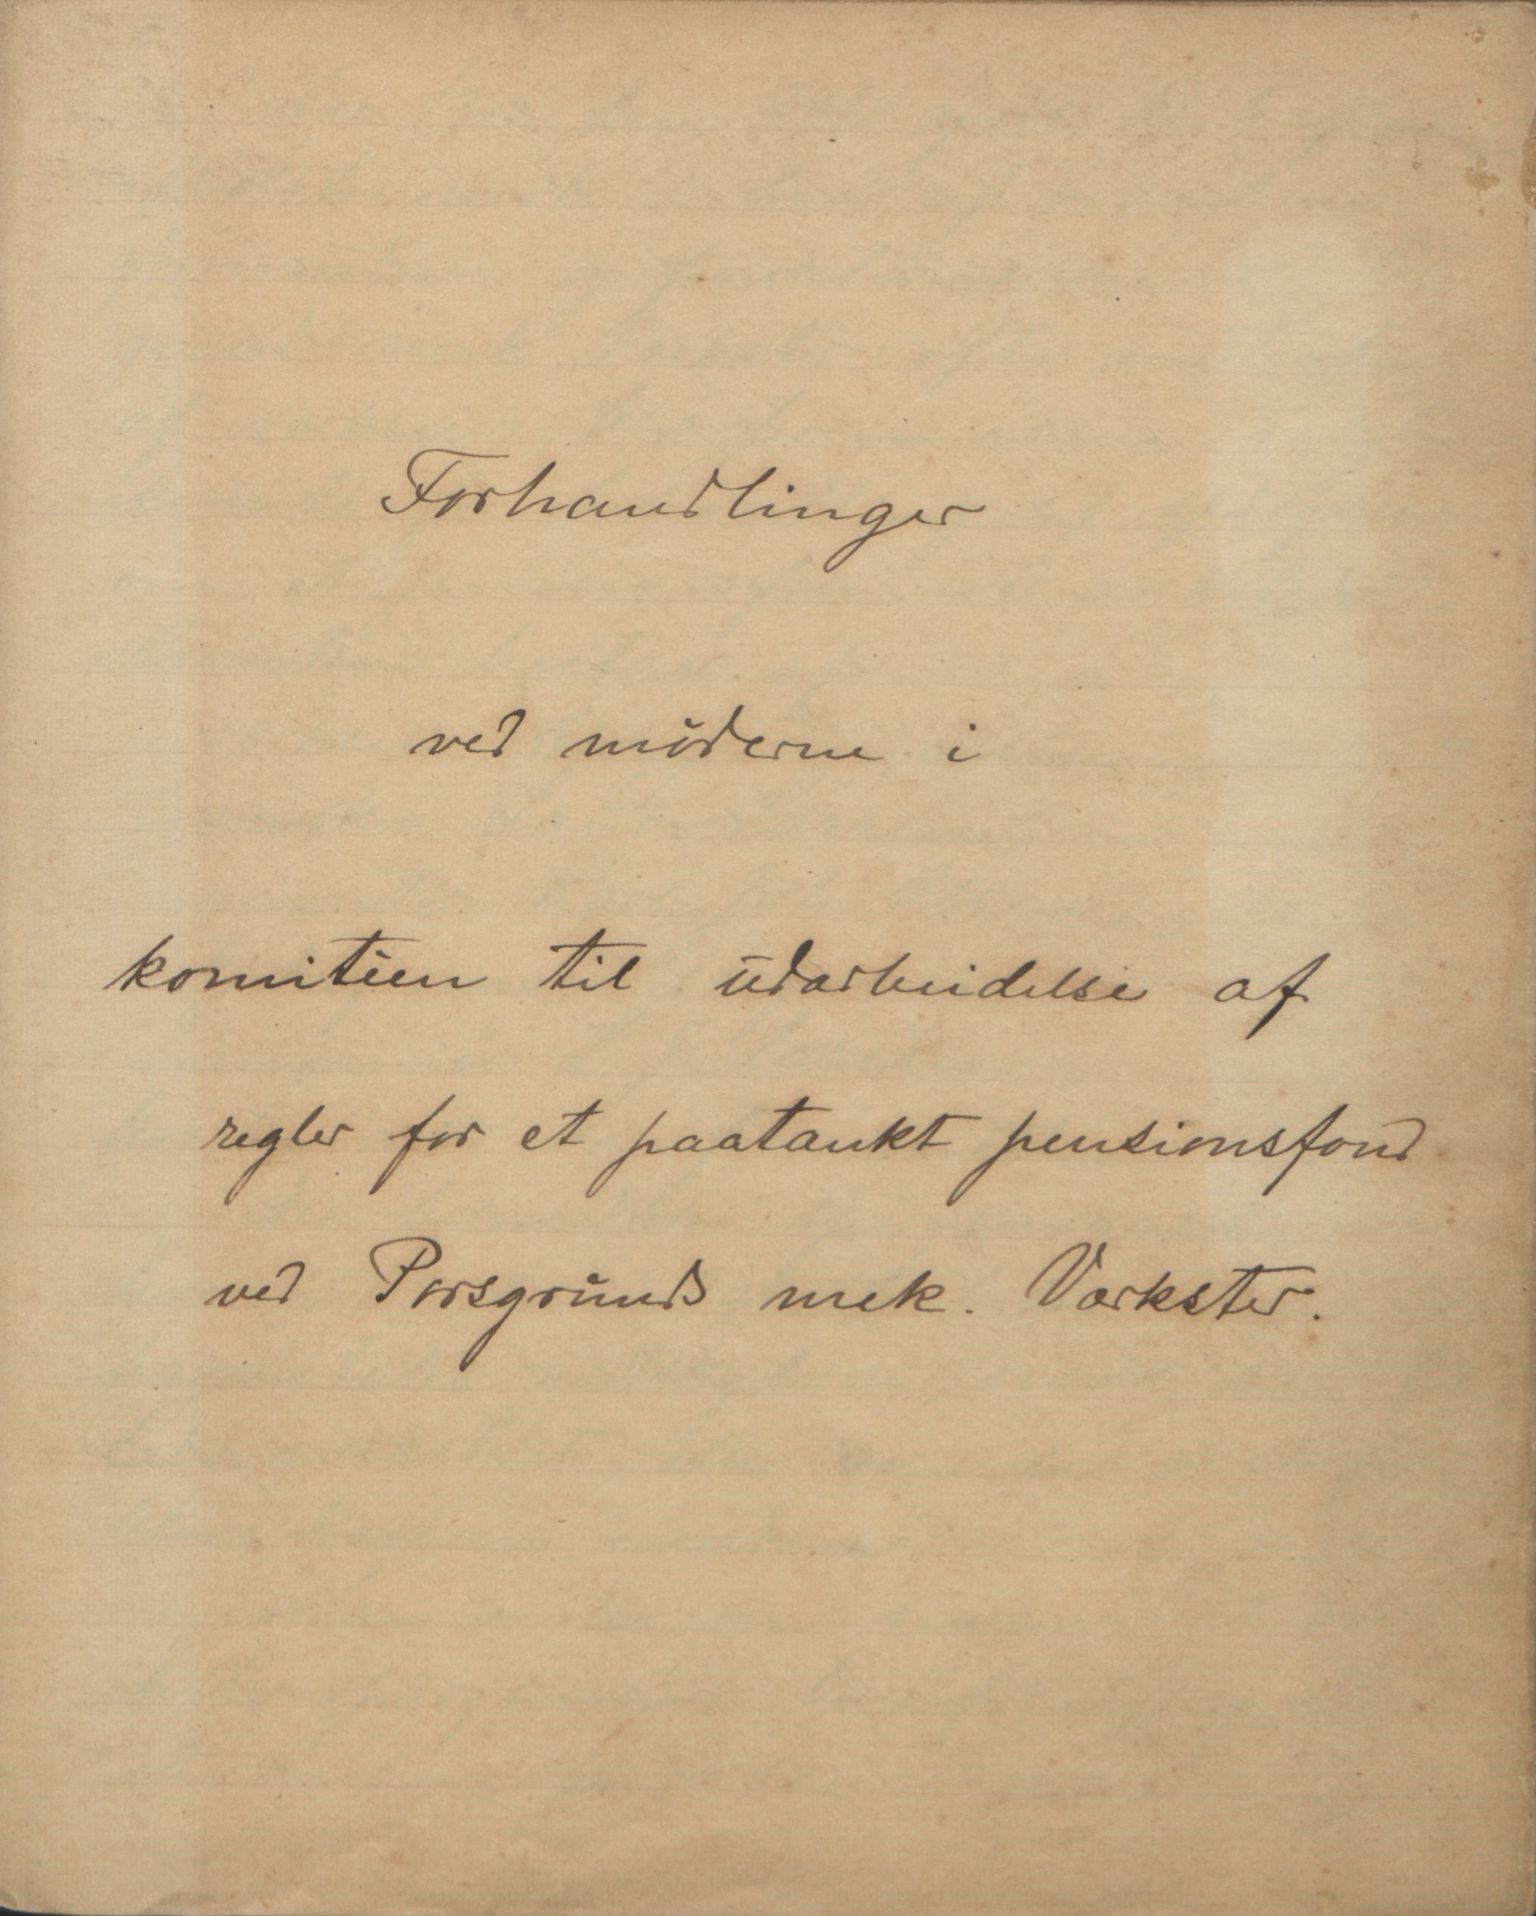 Forhandlinger
ved møderne i
komitéen til udarbeidelse af
regler for et paatænkt pensionsfond
ved Porsgrunds mek. Værksted.